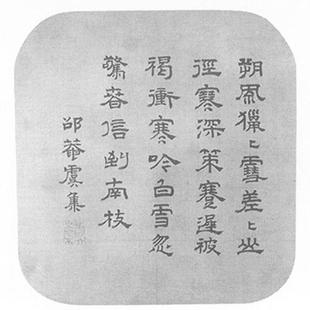 朔風獵〻雪差〻山
徑寒深策蹇遲被
褐衝寒吟白雪忽
驚春信到南枝
邵菴虞集